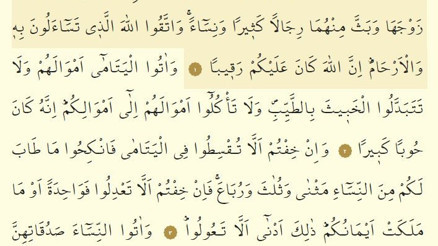 زَوْجَهَا وَبَثَّ مِنْهُمَا رِجَالًا كَث۪يرًا وَنِسَٓاءًۚ وَاتَّقُوا اللّٰهَ الَّذ۪ي تَسَٓاءَلُونَ بِه۪
وَالْاَرْحَامَۜ اِنَّ اللّٰهَ كَانَ عَلَيْكُمْ رَق۪يبًا ١ وَاٰتُوا الْيَتَامٰٓى اَمْوَالَهُمْ وَلَا
تَتَبَدَّلُوا الْخَب۪يثَ بِالطَّيِّبِۖ وَلَا تَأْكُلُٓوا اَمْوَالَهُمْ اِلٰٓى اَمْوَالِكُمْۜ اِنَّهُ كَانَ
حُوبًا كَب۪يرًا ٢ وَاِنْ خِفْتُمْ اَلَّا تُقْسِطُوا فِي الْيَتَامٰى فَانْكِحُوا مَا طَابَ
لَكُمْ مِنَ النِّسَٓاءِ مَثْنٰى وَثُلٰثَ وَرُبَاعَۚ فَاِنْ خِفْتُمْ اَلَّا تَعْدِلُوا فَوَاحِدَةً اَوْ مَا
مَلَكَتْ اَيْمَانُكُمْۜ ذٰلِكَ اَدْنٰٓى اَلَّا تَعُولُواۜ ٣ وَاٰتُوا النِّسَٓاءَ صَدُقَاتِهِنَّ